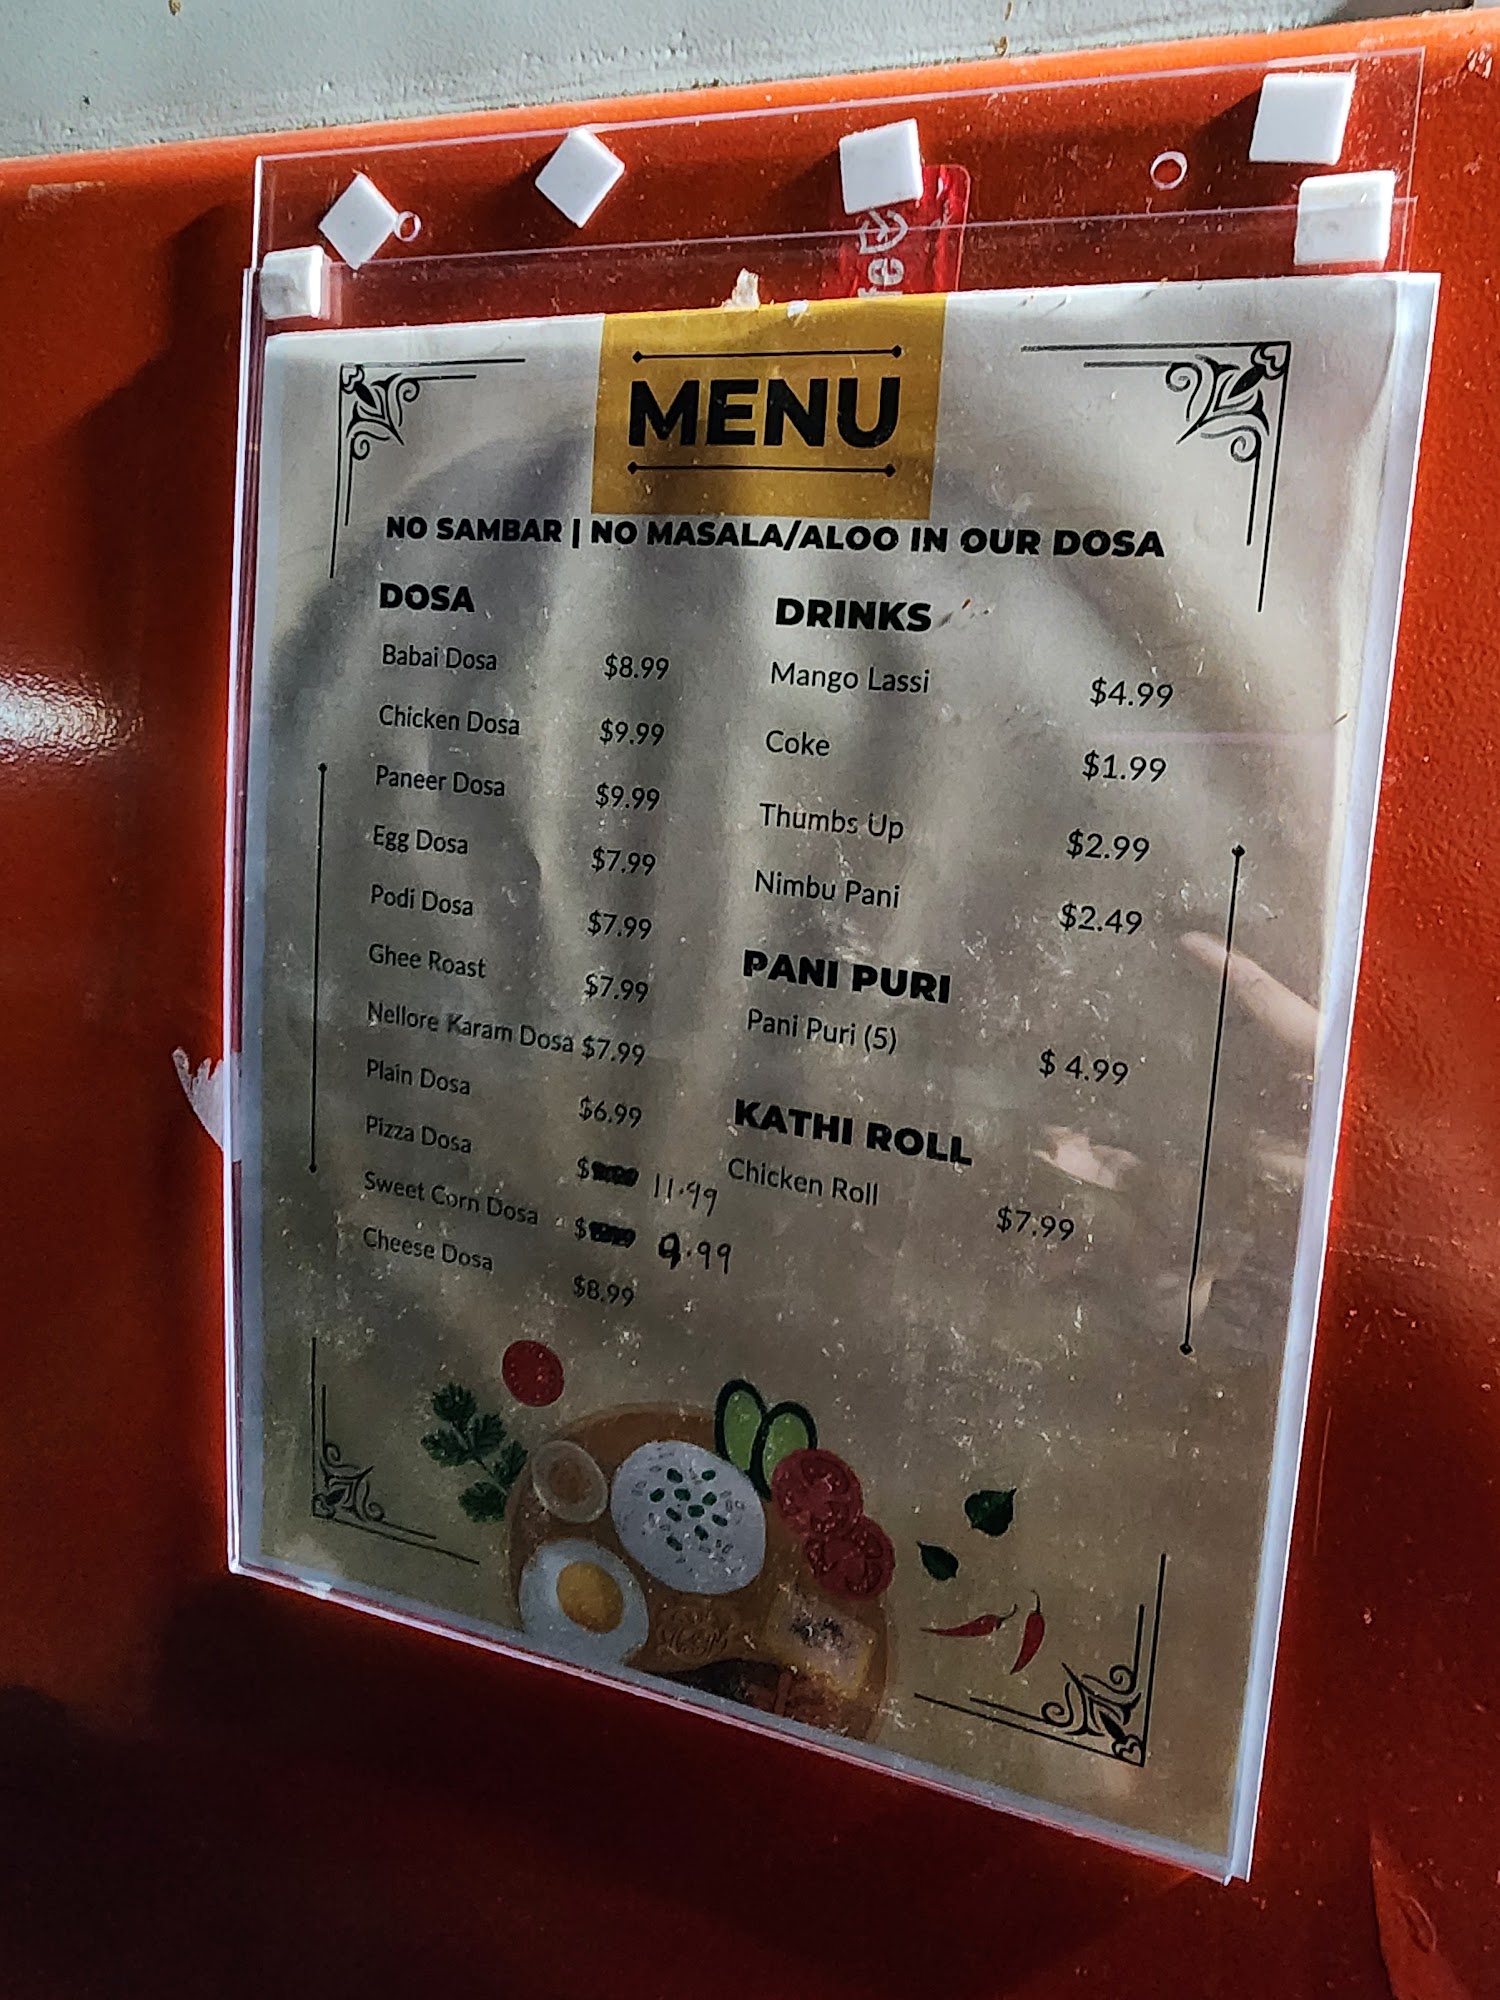 MENU
NO SAMBAR | NO MASALA/ALOO IN OUR DOSA
DOSA
Babai Dosa $8.99
Chicken Dosa $9.99
Paneer Dosa $9.99
Egg Dosa $7.99
Podi Dosa $7.99
Ghee Roast $7.99
Nellore Karam Dosa $7.99
Plain Dosa $6.99
Pizza Dosa $ 11.99
Sweet Corn Dosa $ 9.99
Cheese Dosa $8.99
DRINKS
Mango Lassi $4.99
Coke $1.99
Thumbs Up $2.99
Nimbu Pani $2.49
PANI PURI
Pani Puri (5) $ 4.99
KATHI ROLL
Chicken Roll $7.99